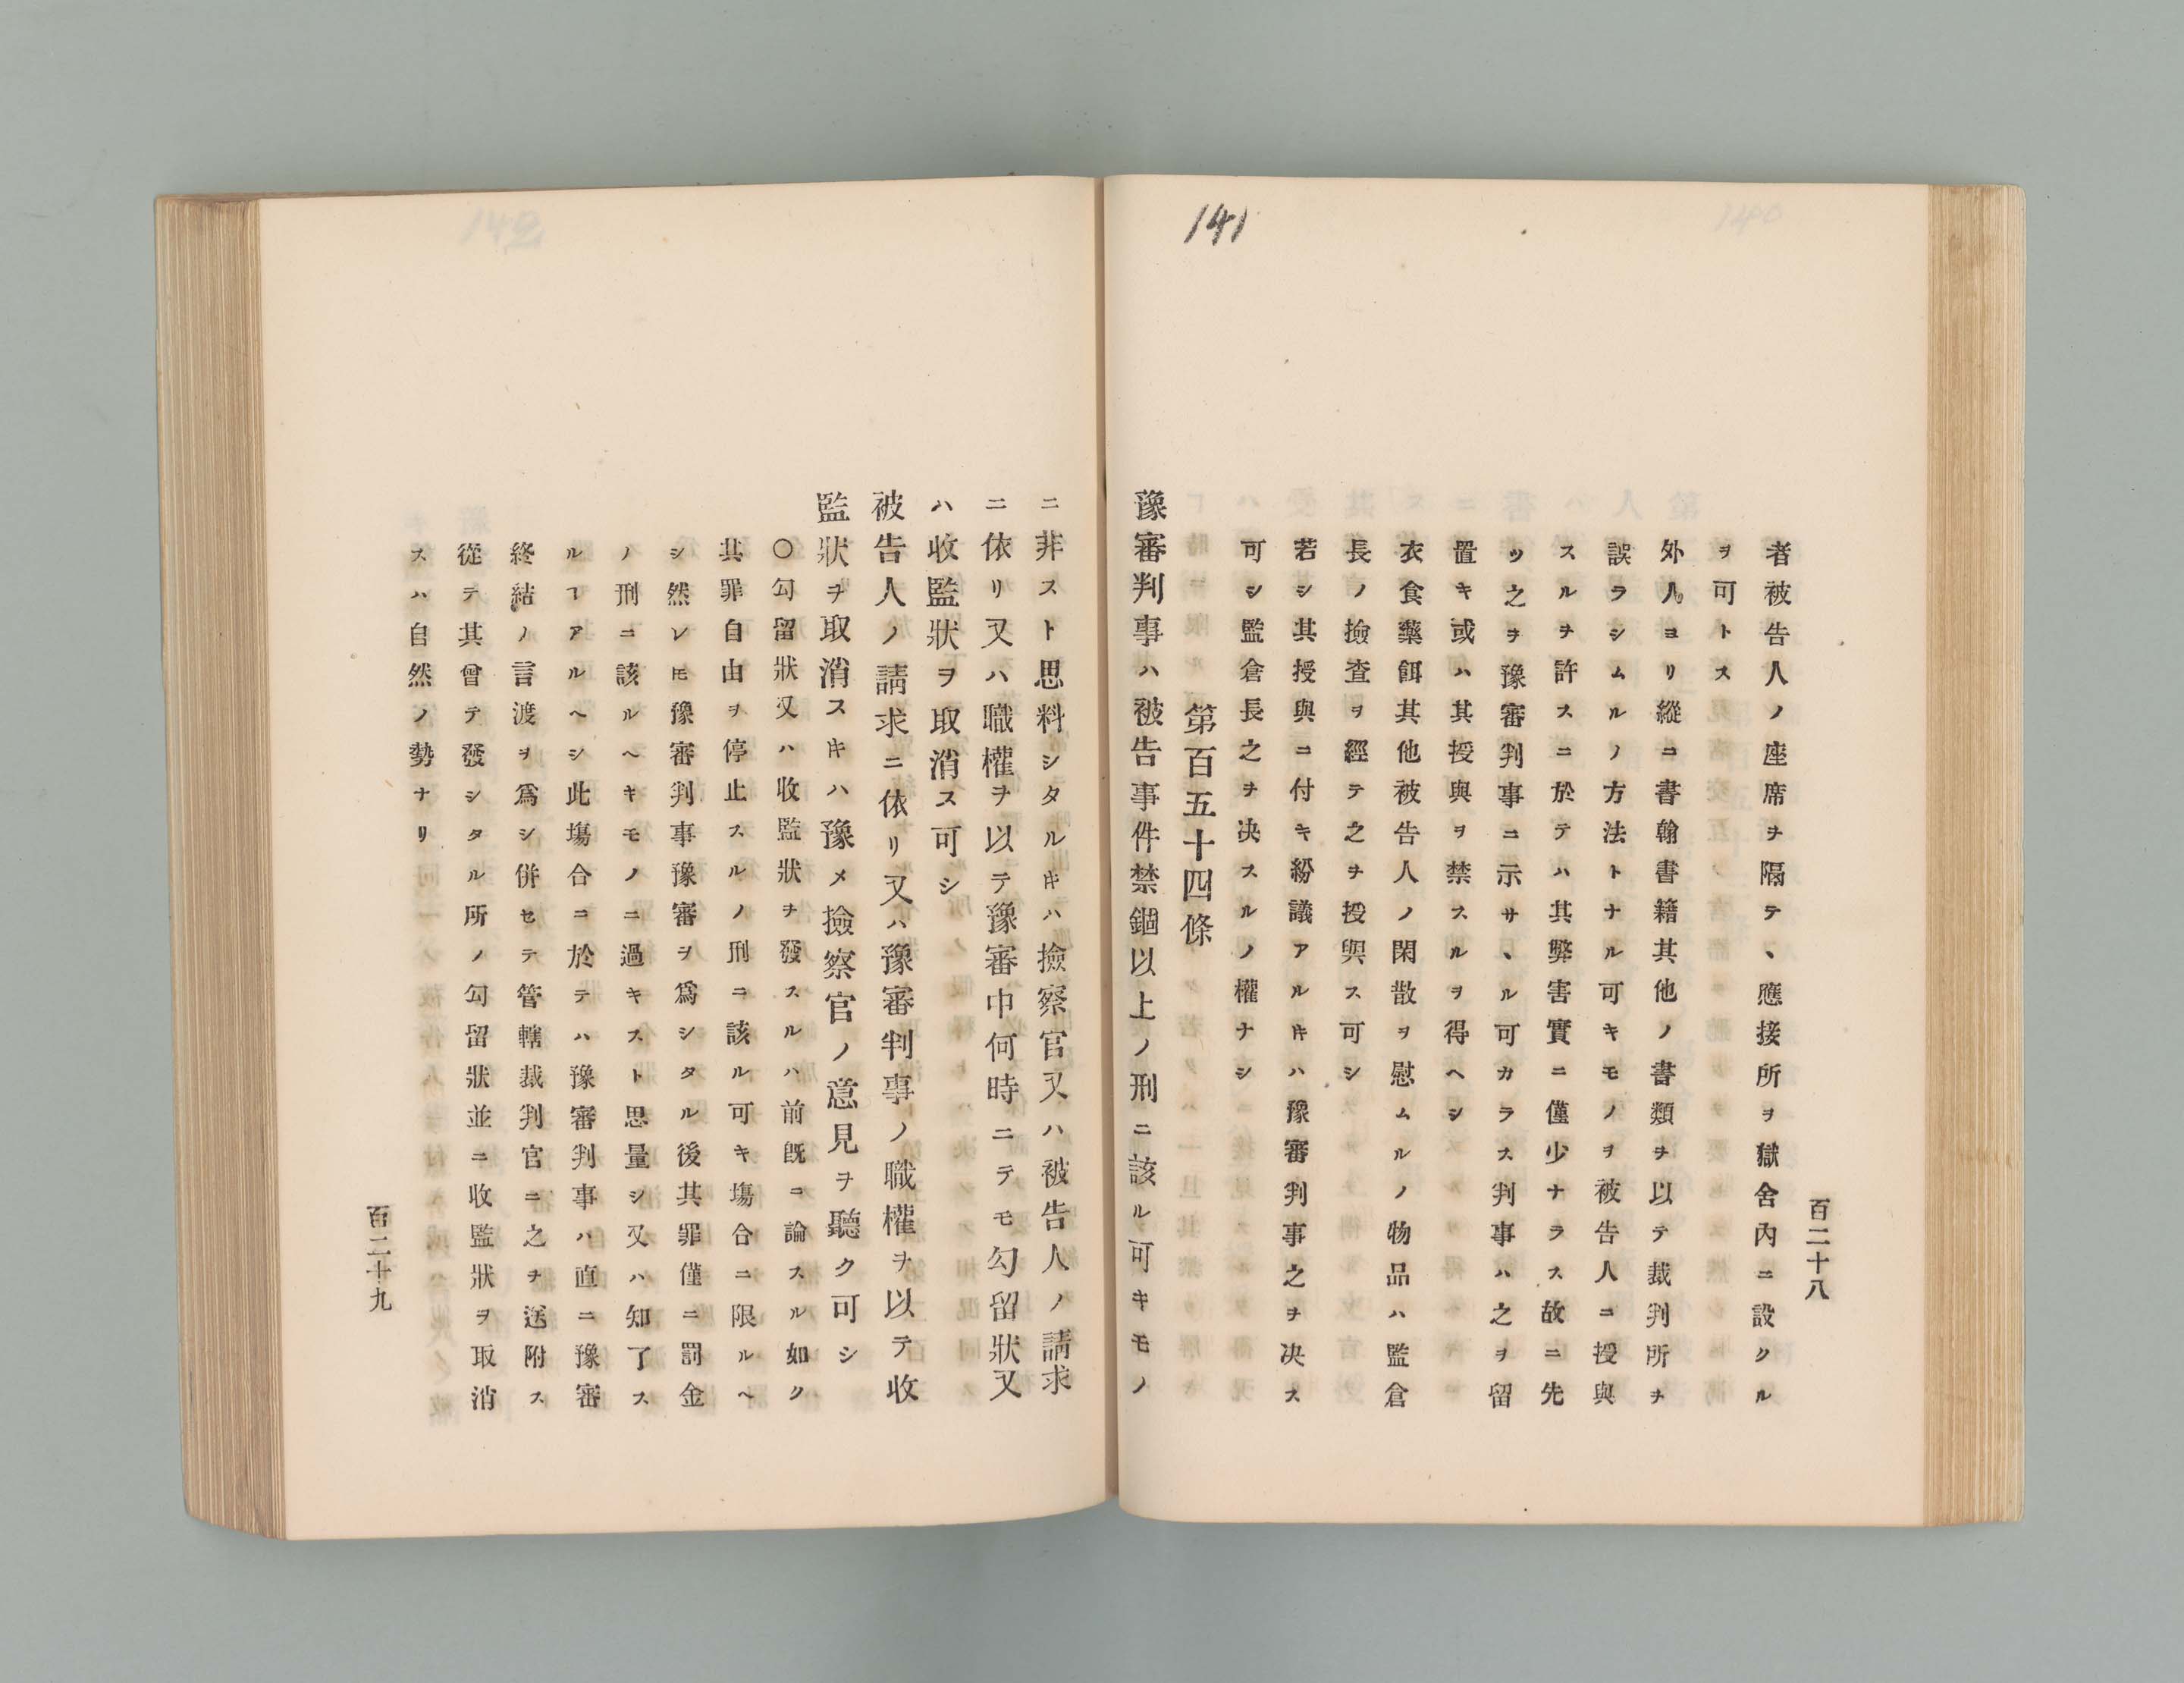 141
百二十八
者被告人ノ座席ヲ隔テ、應接所ヲ獄舍內ニ設クル
ヲ可トス
外人ヨリ縱ニ書翰書籍其他ノ書類ヲ以テ裁判所ヲ
誤ラシムルノ方法トナル可キモノヲ被告人ニ授與
スルヲ許スニ於テハ其弊害實ニ僅少ナラス故ニ先
ツ之ヲ豫審判事ニ示サヽル可カラス判事ハ之ヲ留
置キ或ハ其授與ヲ禁スルヲ得ヘシ
衣食藥餌其他被告人ノ閑散ヲ慰ムルノ物品ハ監倉
長ノ撿査ヲ經テ之ヲ授與ス可シ
若シ其授與ニ付キ紛議アルキハ豫審判事之ヲ决ス
可シ監倉長之ヲ决スルノ權ナシ
第百五十四條
豫審判事ハ被告事件禁錮以上ノ刑ニ該ル可キモノ
ニ非スト思料シタルキハ撿察官又ハ被告人ノ請求
ニ依リ又ハ職權ヲ以テ豫審中何時ニテモ勾留狀又
ハ收監狀ヲ取消ス可シ
被告人ノ請求ニ依リ又ハ豫審判事ノ職權ヲ以テ收
監狀ヲ取消スキハ豫メ撿察官ノ意見ヲ聽ク可シ
〇勾留狀又ハ收監狀ヲ發スルハ前旣ニ論スル如ク
其罪自由ヲ停止スルノ刑ニ該ル可キ塲合ニ限ルヘ
シ然レ𪜈豫審判事豫審ヲ爲シタル後其罪僅ニ罰金
ノ刑ニ該ルヘキモノニ過キスト思量シ又ハ知了ス
ルヿアルヘシ此塲合ニ於テハ豫審判事ハ直ニ豫審
終結ノ言渡ヲ爲シ併セテ管轄裁判官ニ之ヲ送附ス
從テ其曾テ發シタル所ノ勾留狀並ニ收監狀ヲ取消
スハ自然ノ勢ナリ
百二十九